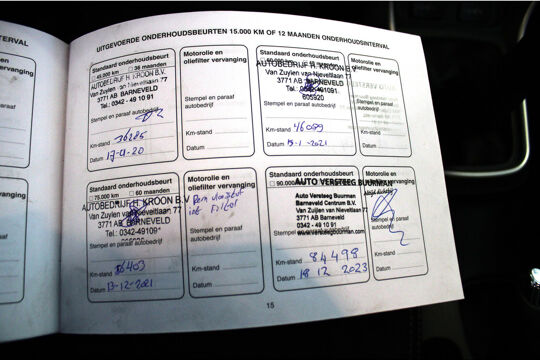 UITGEVOERDE ONDERHOUDSBEURTEN 15.000 KM OF 12 MAANDEN ONDERHOUDSINTERVAL
Standaard onderhoudsbeurt
45.000 km 36 maanden
AUTOBEDRIJF H. KROON B.V.
Van Zuylen van Nieveltlaan 77
3771 AB BARNEVELD
Tel.: 0342 - 49 10 91
Stempel en paraaf autobedrijf
Km-stand 36285
Datum 17-11-20
Motorolie en
oliefilter vervanging
Stempel en paraaf
autobedrijf
Km-stand
Datum
Standaard onderhoudsbeurt
AUTOBEDRIJF H. KROON B.V.
Van Zuylen van Nieveltlaan 77
3771 AB BARNEVELD
605920
Stempel en paraaf autobedrijf
Km-stand 46089
Datum
Motorolie en
oliefilter vervanging
Stempel en paraaf
autobedrijf
Km-stand
Datum
Standaard onderhoudsbeurt
75.000 km 60 maanden
AUTOBEDRIJF H. KROON B.V.
Van Zuylen van Nieveltlaan 77
3771 AB BARNEVELD
Tel.: 0342-49109
Km-stand
Datum 13-12-2021
Motorolie en
oliefilter vervanging
Km-stand
Datum
Standaard onderhoudsbeurt
90.000
AUTO VERSTEEG BUURMAN
Auto Versteeg Buurman
Barneveld Centrum B.V.
Van Zuijlen van Nieveltlaan 77
3771 AB Barneveld
0342 - 49 10 91
www.versteegbuurman.com
Km-stand 84498
Datum 18 12 2023
Motorolie en
Stempel en paraaf
autobedrijf
Km-stand
Datum
15